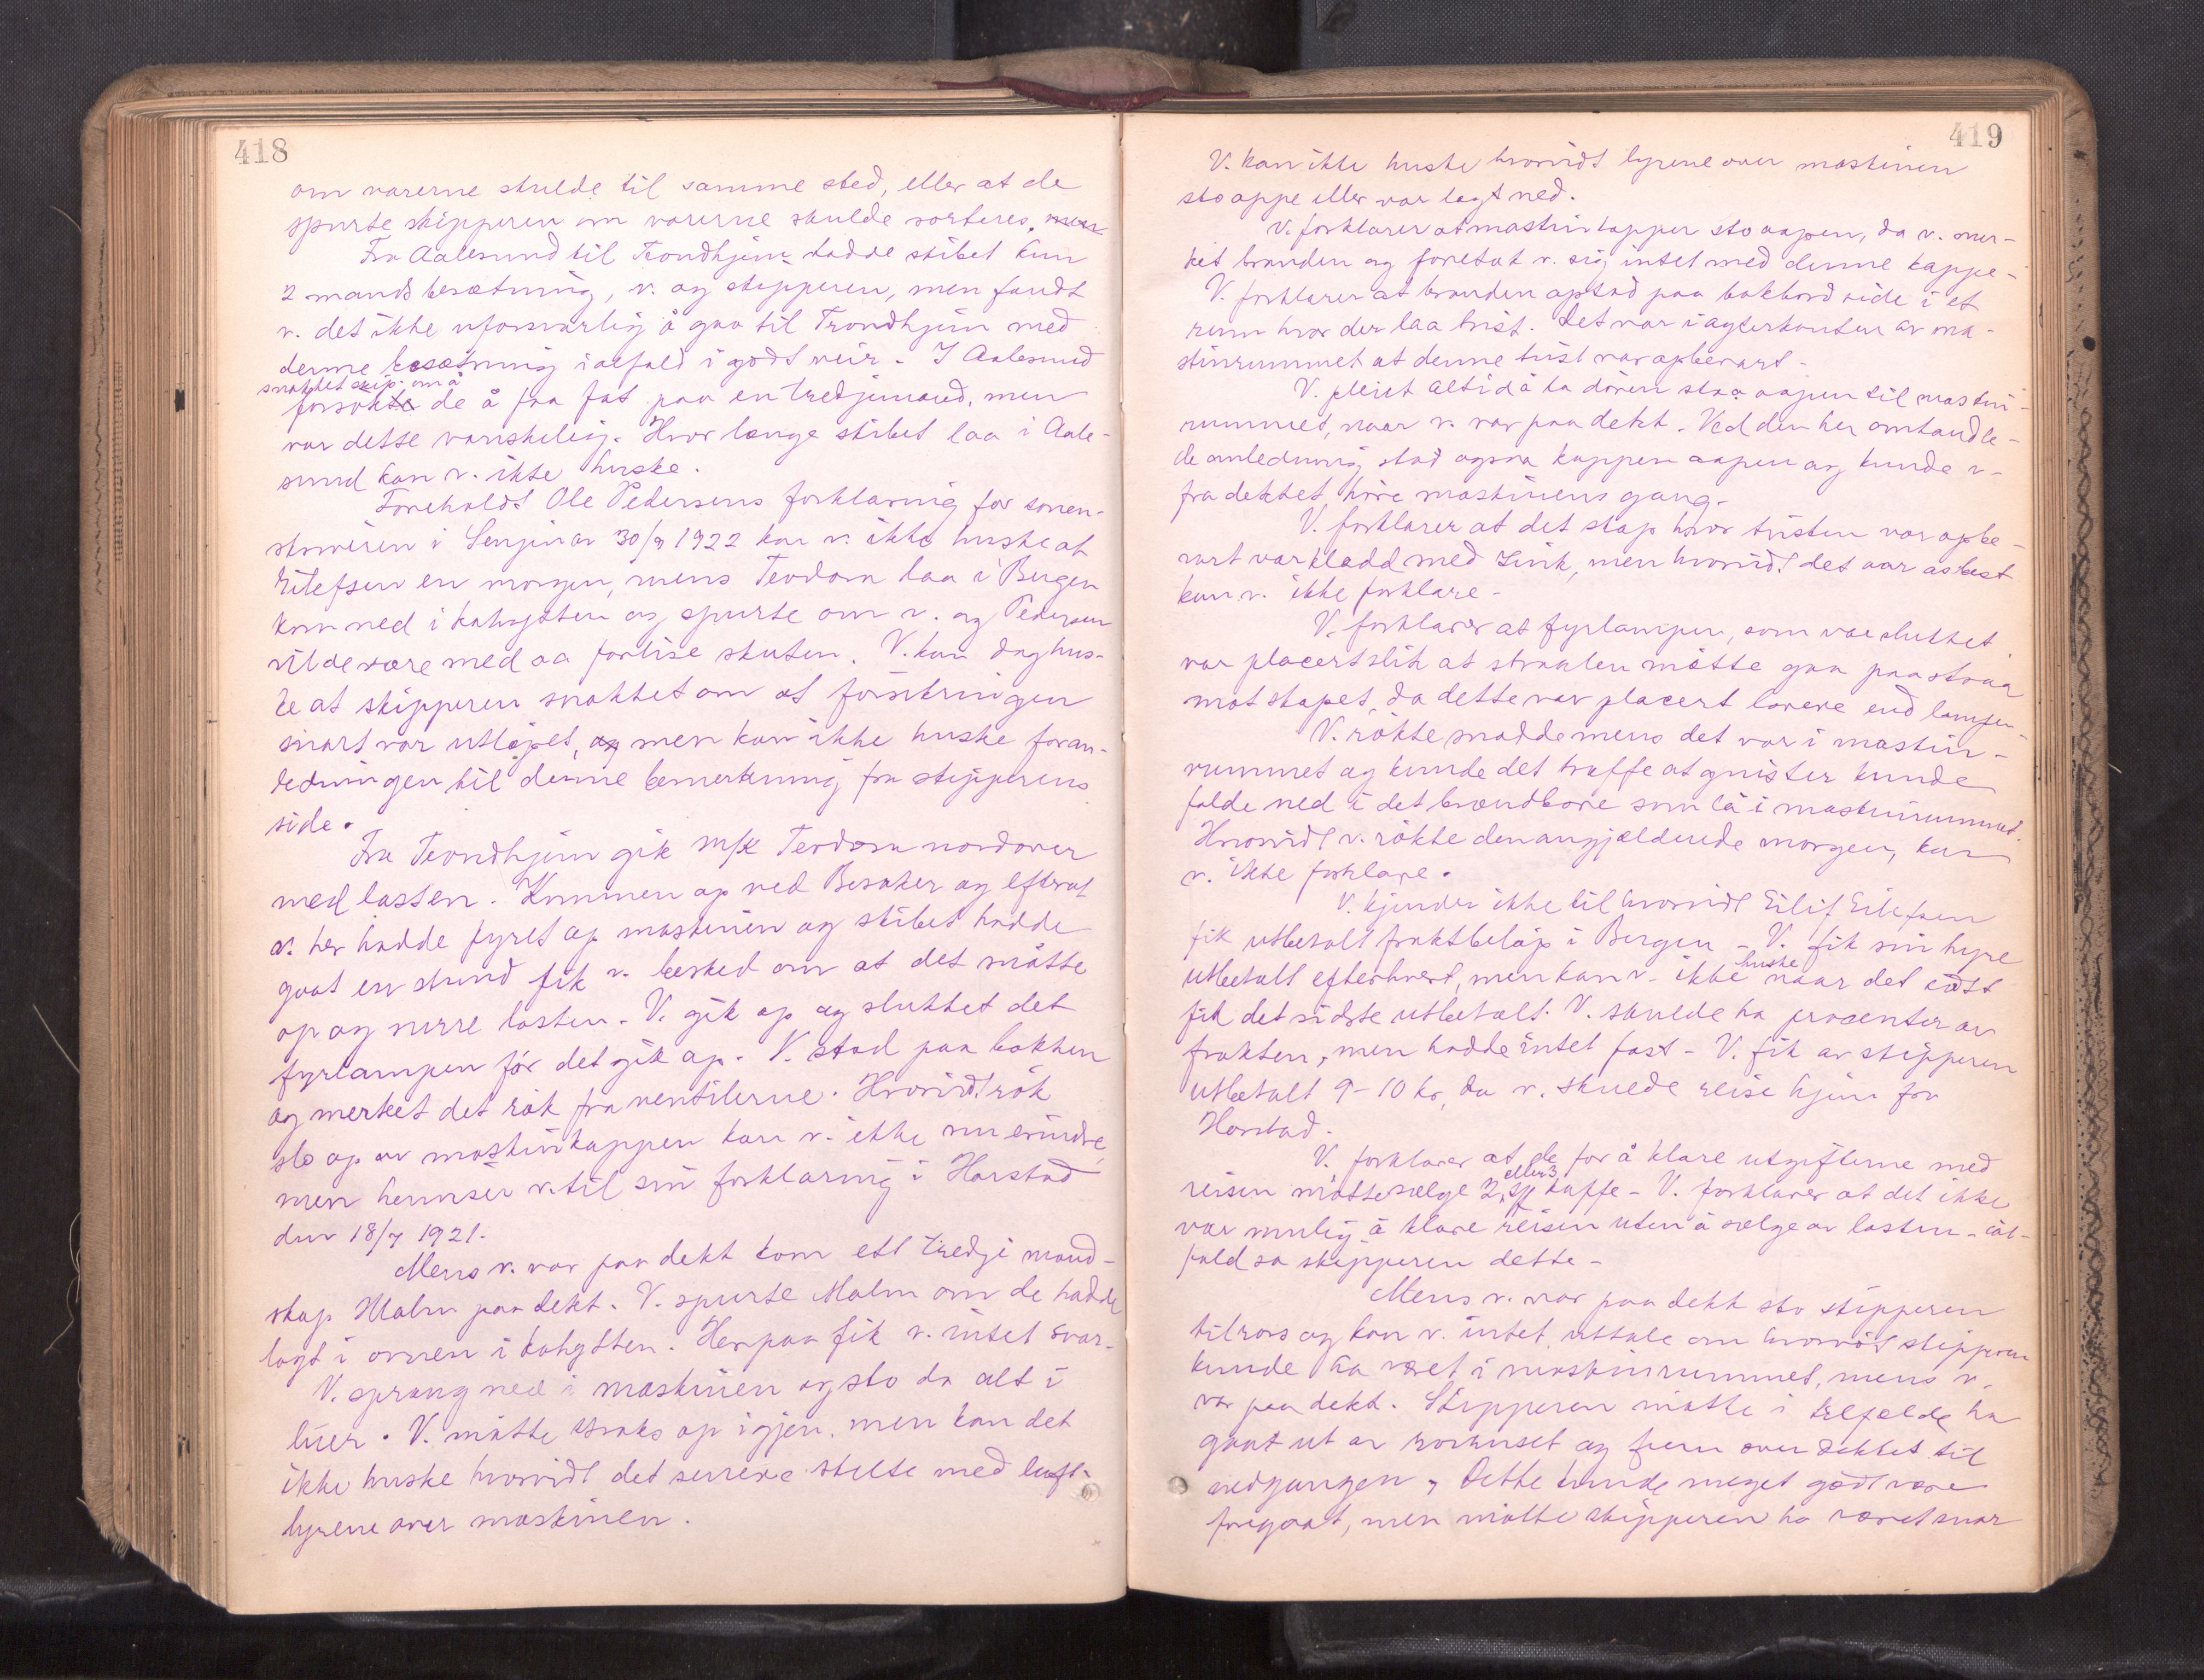 418
om varerne skulde til samme sted, eller at de
spurte skipperen om varerne skulde sorteres, men
Fra Aalesund til Trondhjem hadde skibet kun
2 mands besætning, v. og skipperen, men fandt
v. det ikke uforsvarlig å gaa til Trondhjem med
denne besætning ialfald i godt veir. I Aalesund
snakket skip. om å
forsøkte de å faa fat paa en tredjemand, men
var dette vanskelig. Hvor længe skibet laa i Aale-
sund kan v. ikke huske.
Foreholdt Ole Pedersens forklaring for lens-
i Senjen av 30/9 1922 kan v. ikke huske at
Eilefsen en morgen, mens Teodora laa i Bergen
kom ned i kahytten og spurte om v. og Pedersen
vilde være med aa forlise skuten. V. kan dog hus-
ke at skipperen snakket om at forsikringen
snart var utløpet, og men kan ikke huske foran-
ledningen til denne bemerkning fra skipperens
side.
Fra Trondhjem gik m/k Teodora nordover
med lasten. Kommen op ved Besaker og efterat
v. her hadde fyret op maskinen og skibet hadde
gaat en stund fik v. besked om at det måtte
op og surre lasten. V. gik op og slukket det
fyrlampen før det gik op. V. stod paa bakken
og merket det røk fra ventilerne. Hvorvidt røk
slo op av maskinkappen kan v. ikke nu erindre,
men henviser v. til sin forklaring i Harstad
den 18/7 1921.
Mens v. var paa dekk kom ett tredje mand-
skap Malm paa dekk. V. spurte Malm om de hadde
lagt i ovnen i kahytten. Herpaa fik v. intet svar.
V. sprang ned i maskinen og sto da alt i
luer. V. måtte straks op igjen, men kan det
ikke huske hvorvidt det senere stelte med luft-
lyrene over maskinen.
419
V. kan ikke huske hvorvidt lyrene over maskinen
sto oppe eller var lagt ned.
V. forklarer at maskinkappen sto aapen, da v. mer-
ket branden og foretok v. sig intet med denne kappe.
V. forklarer at branden opstod paa bakbord side i et
rum hvor der laa tvist. Det var i agterkanten av ma-
skinrummet at denne tvist var opbevart.
V. pleiet altid å la døren staa aapen til maskin-
rummet, naar v. var paa dekk. Ved den her omhandle-
de anledning stod ogsaa kappen aapen og kunde v.
fra dekket høre maskinens gang.
V. forklarer at det skap hvor tvisten var opbe-
vart var kledd med zink, men hvorvidt det var asbest
kan v. ikke forklare.
V. forklarer at fyrlampen, som var slukket
var placert slik at straalen måtte gaa paa skraa
mot skapet, da dette var placert lavere end lampen.
V. røkte snadde mens det var i maskin-
rummet og kunde det træffe at gnister kunde
falde ned i det brændbare som lå i maskinrummet.
Hvorvidt v. røkte den angjældende morgen, kan
v. ikke forklare.
V. kjender ikke til hvorvidt Eilif Eilefsen
fik utbetalt fraktbeløp i Bergen. V. fik sin hyre
huske
utbetalt efterhvert, men kan v. ikke naar det sidst
fik det sidste utbetalt. V. skulde ha procenter av
frakten, men hadde intet fast. V. fik av skipperen
utbetalt 9-10 kr, da v. skulde reise hjem fra
Harstad.
V. forklarer at de for å klare utgifterne med
eller 3
reisen måtte sælge 2 sk kaffe. V. forklarer at det ikke
var mulig å klare reisen uten å sælge av lasten - ial-
fald sa skipperen dette.
Mens v. var paa dekk sto skipperen
tilrors og kan v. intet uttale om hvorvidt skipperen
kunde ha været i maskinrummet, mens v.
var paa dekk. Skipperen måtte i tilfælde ha
gaat ut av rorhuset og frem over dekket til
nedgangen. Dette kunde meget godt være
foregaat, men måtte skipperen ha været snar